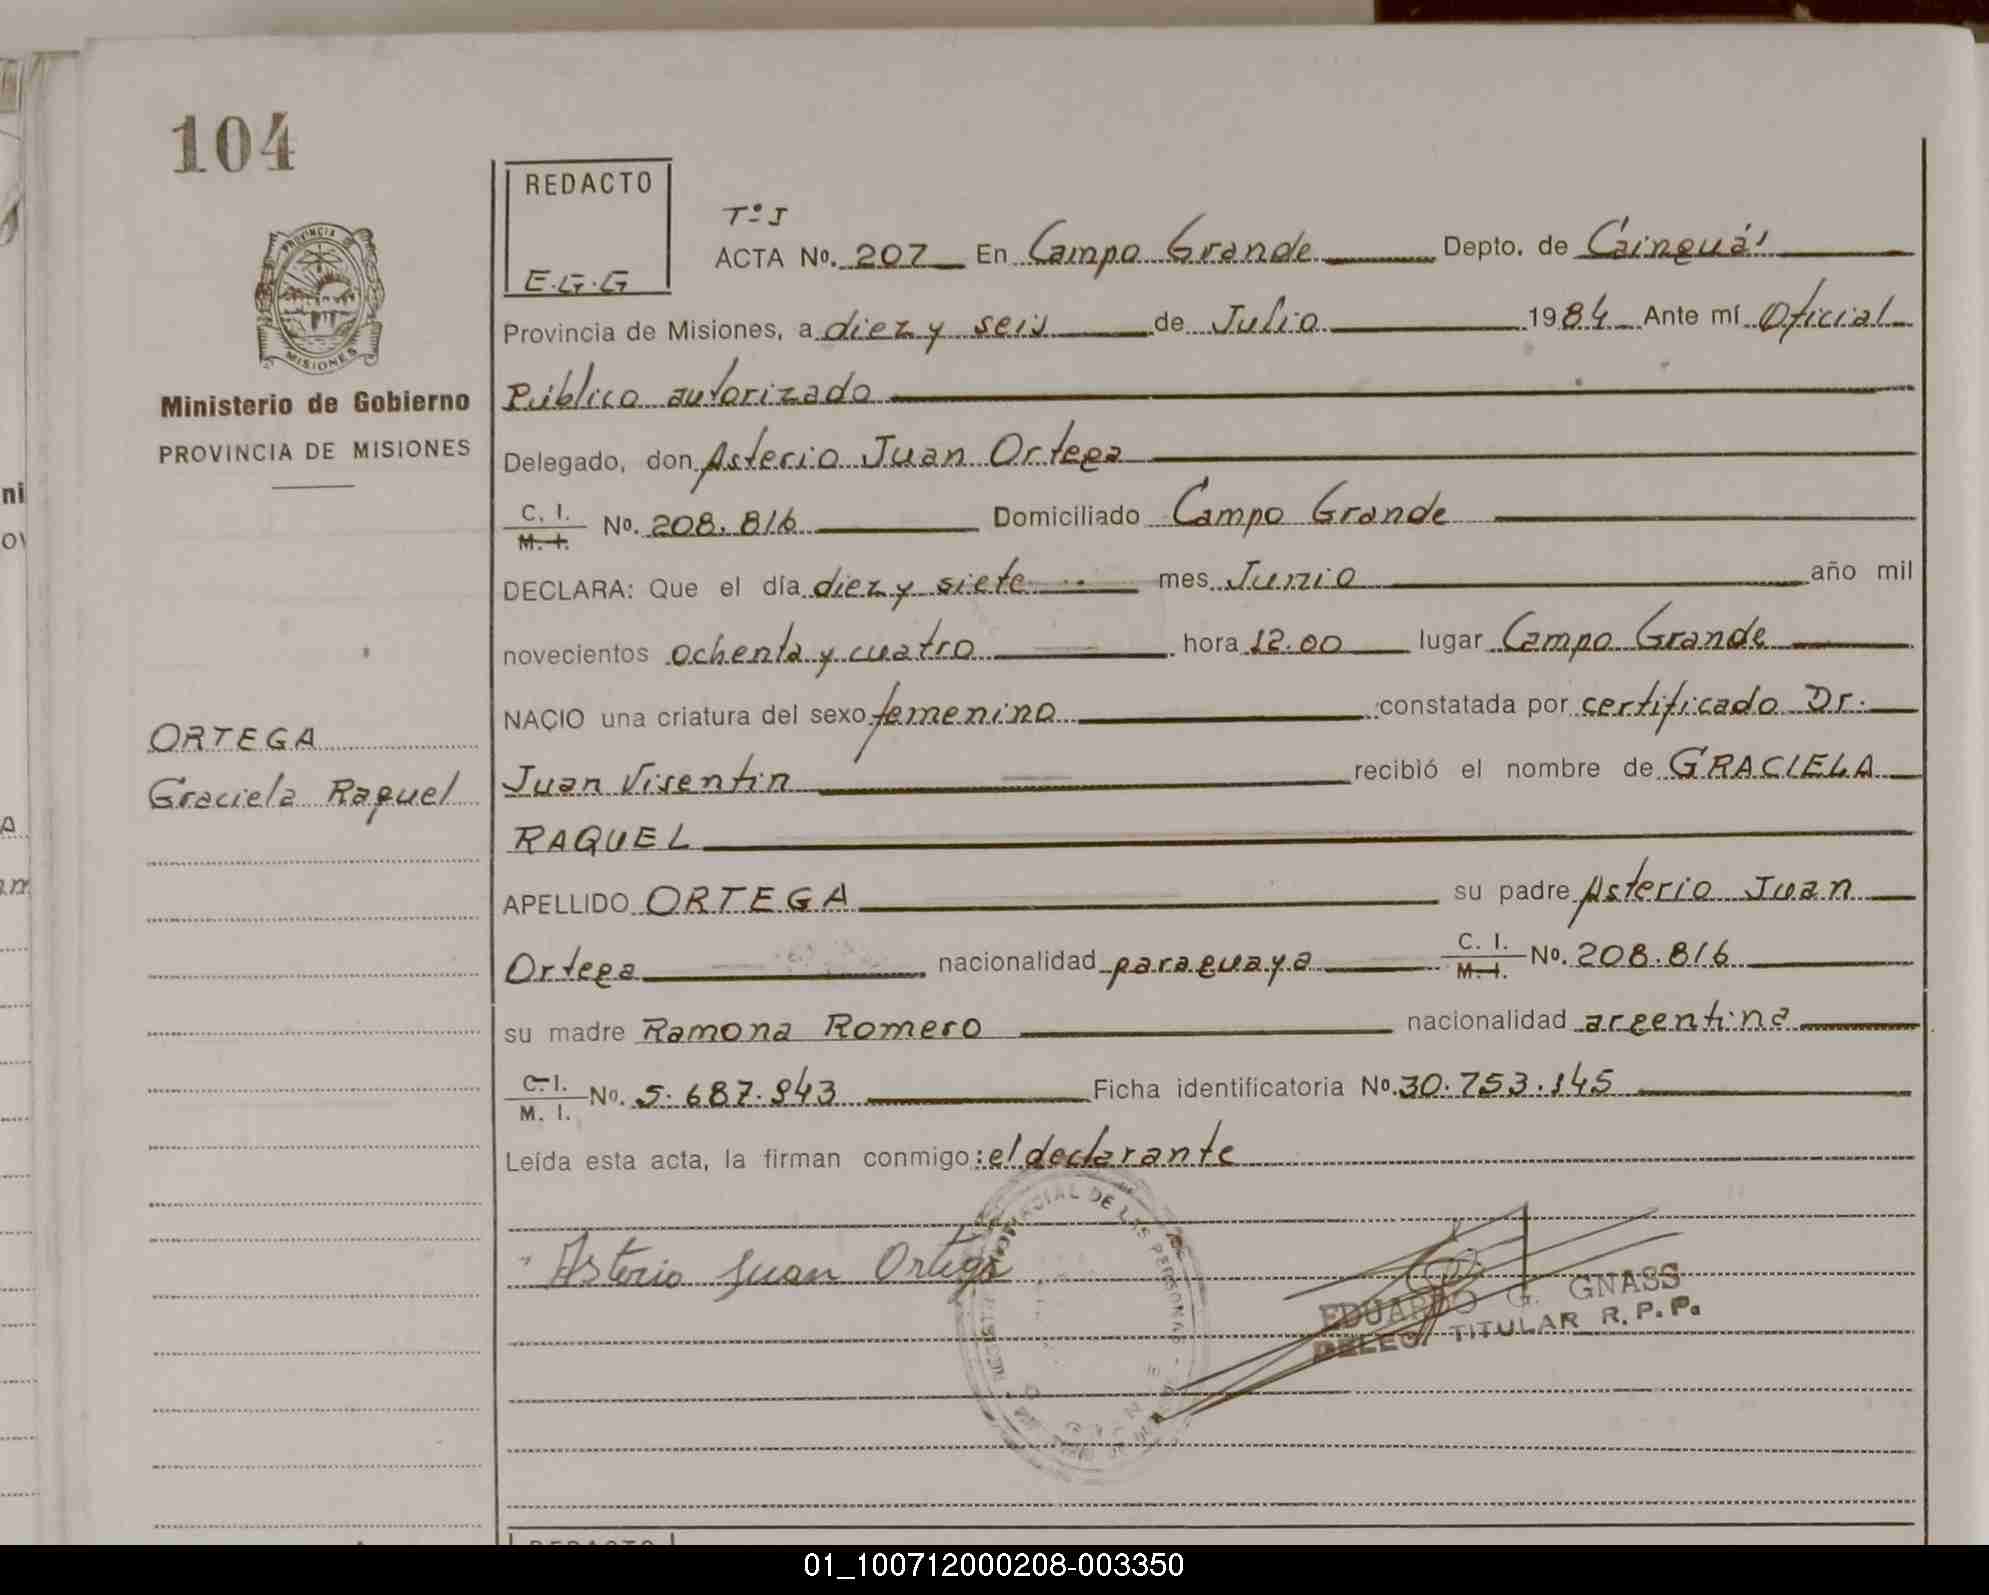 104
PROVINCIA DE
MISIONES
Ministerio de Gobierno
PROVINCIA DE MISIONES
ORTEGA
Graciela Raquel
REDACTO
E.G.G
Tº I
ACTA Nº. 207 En Campo Grande Depto. de Cainguás
Provincia de Misiones, a diez y seis de Julio 1984 Ante mí Oficial
Público autorizado
Delegado, don Asterio Juan Ortega
C. I.
M. I. Nº. 208.816 Domiciliado Campo Grande
DECLARA: Que el día diez y siete mes Junio año mil
novecientos ochenta y cuatro hora 12.00 lugar Campo Grande
NACIO una criatura del sexo femenino constatada por certificado Dr.
Juan Visentin recibió el nombre de GRACIELA
RAQUEL
APELLIDO ORTEGA su padre Asterio Juan
Ortega nacionalidad paraguaya C. I. M. I. Nº. 208.816
su madre Ramona Romero nacionalidad argentina
C. I.
M. I. Nº. 5.687.943 Ficha identificatoria Nº. 30.753.145
Leída esta acta, la firman conmigo: el declarante
Asterio Juan Ortega
DE LAS PERSONAS
EDUARDO G. GNASS
DELEG. TITULAR R.P.P.
REDACTO
01_100712000208-003350